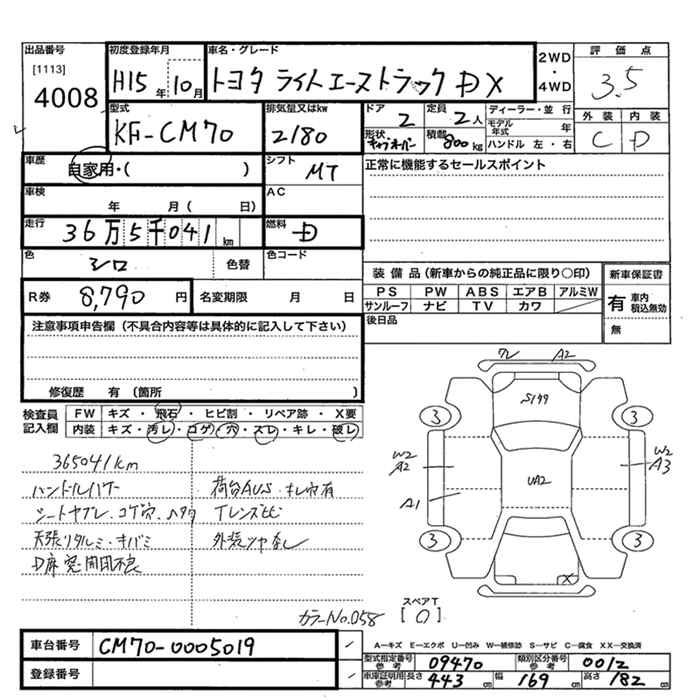 出品番号
[1113]
4008
初度登録年月
H15 年 10 月
車名・グレード
トヨタ ライトエーストラック D DX
2WD
・
4WD
評価点
3.5
外装 内装
C D
型式
KF-CM70
排気量又はkw
2180
ドア
2
定員
2人
形状
積載
800 kg
ディーラー・並行
モデル年式 年
ハンドル 左・右
車歴
自家用・( )
シフト
MT
正常に機能するセールスポイント
車検
年 月( 日)
AC
走行
36万5千041 km
燃料
D
色
シロ
色替
色コード
R券 8,790 円
名変期限 月 日
装備品(新車からの純正品に限り○印)
PS PW ABS エアB アルミW
サンルーフ ナビ TV カワ
後日品
新車保証書
有 車内積込無効
無
注意事項申告欄(不具合内容等は具体的に記入して下さい)
修復歴 有(箇所 )
検査員記入欄
FW キズ・飛石・ヒビ割・リペア跡・X要
内装 キズ・汚レ・コゲ・穴・スレ・キレ・破レ
365041km
ハンドルハゲ
シートヤブレ、コゲ穴、
天張リタルミ・キバミ
D席窓開閉不良
荷台AUS・キレ穴有
Tレンズヒビ
外装ツヤなし
カラーNo.058
ワレ A2
S199
3 3
W2
A2
W2
A3
UA2
A1
3 3
X
スペアT
[0]
車台番号
CM70-0005019
登録番号
A―キズ E―エクボ U―凹み W―補修跡 S―サビ C―腐食 XX―交換済
型式指定番号 参考 09470
類別区分番号 参考 0012
車庫証明用 参考 長さ 443 cm 幅 169 cm 高さ 182 cm